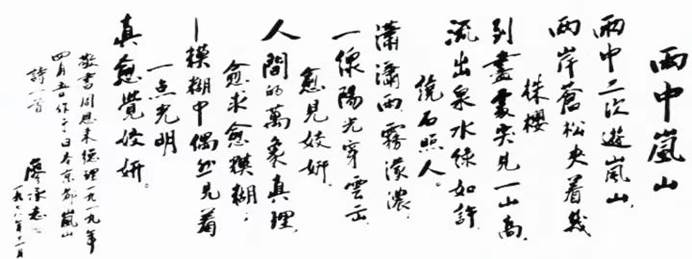 雨中嵐山
雨中二次遊嵐山.
兩岸蒼松夾着幾
株櫻
到盡處突見一山高.
流出泉水綠如許.
繞石照人.
瀟瀟雨霧濛濃.
一線陽光穿雲出
愈見姣妍.
人間的萬象真理.
愈求愈模糊.
—模糊中偶然見着
一点光明
真愈覺姣妍。
敬書周恩来總理一九一九年
四月五日作于日本京都嵐山
詩一首
廖承志
一九七八年十一月